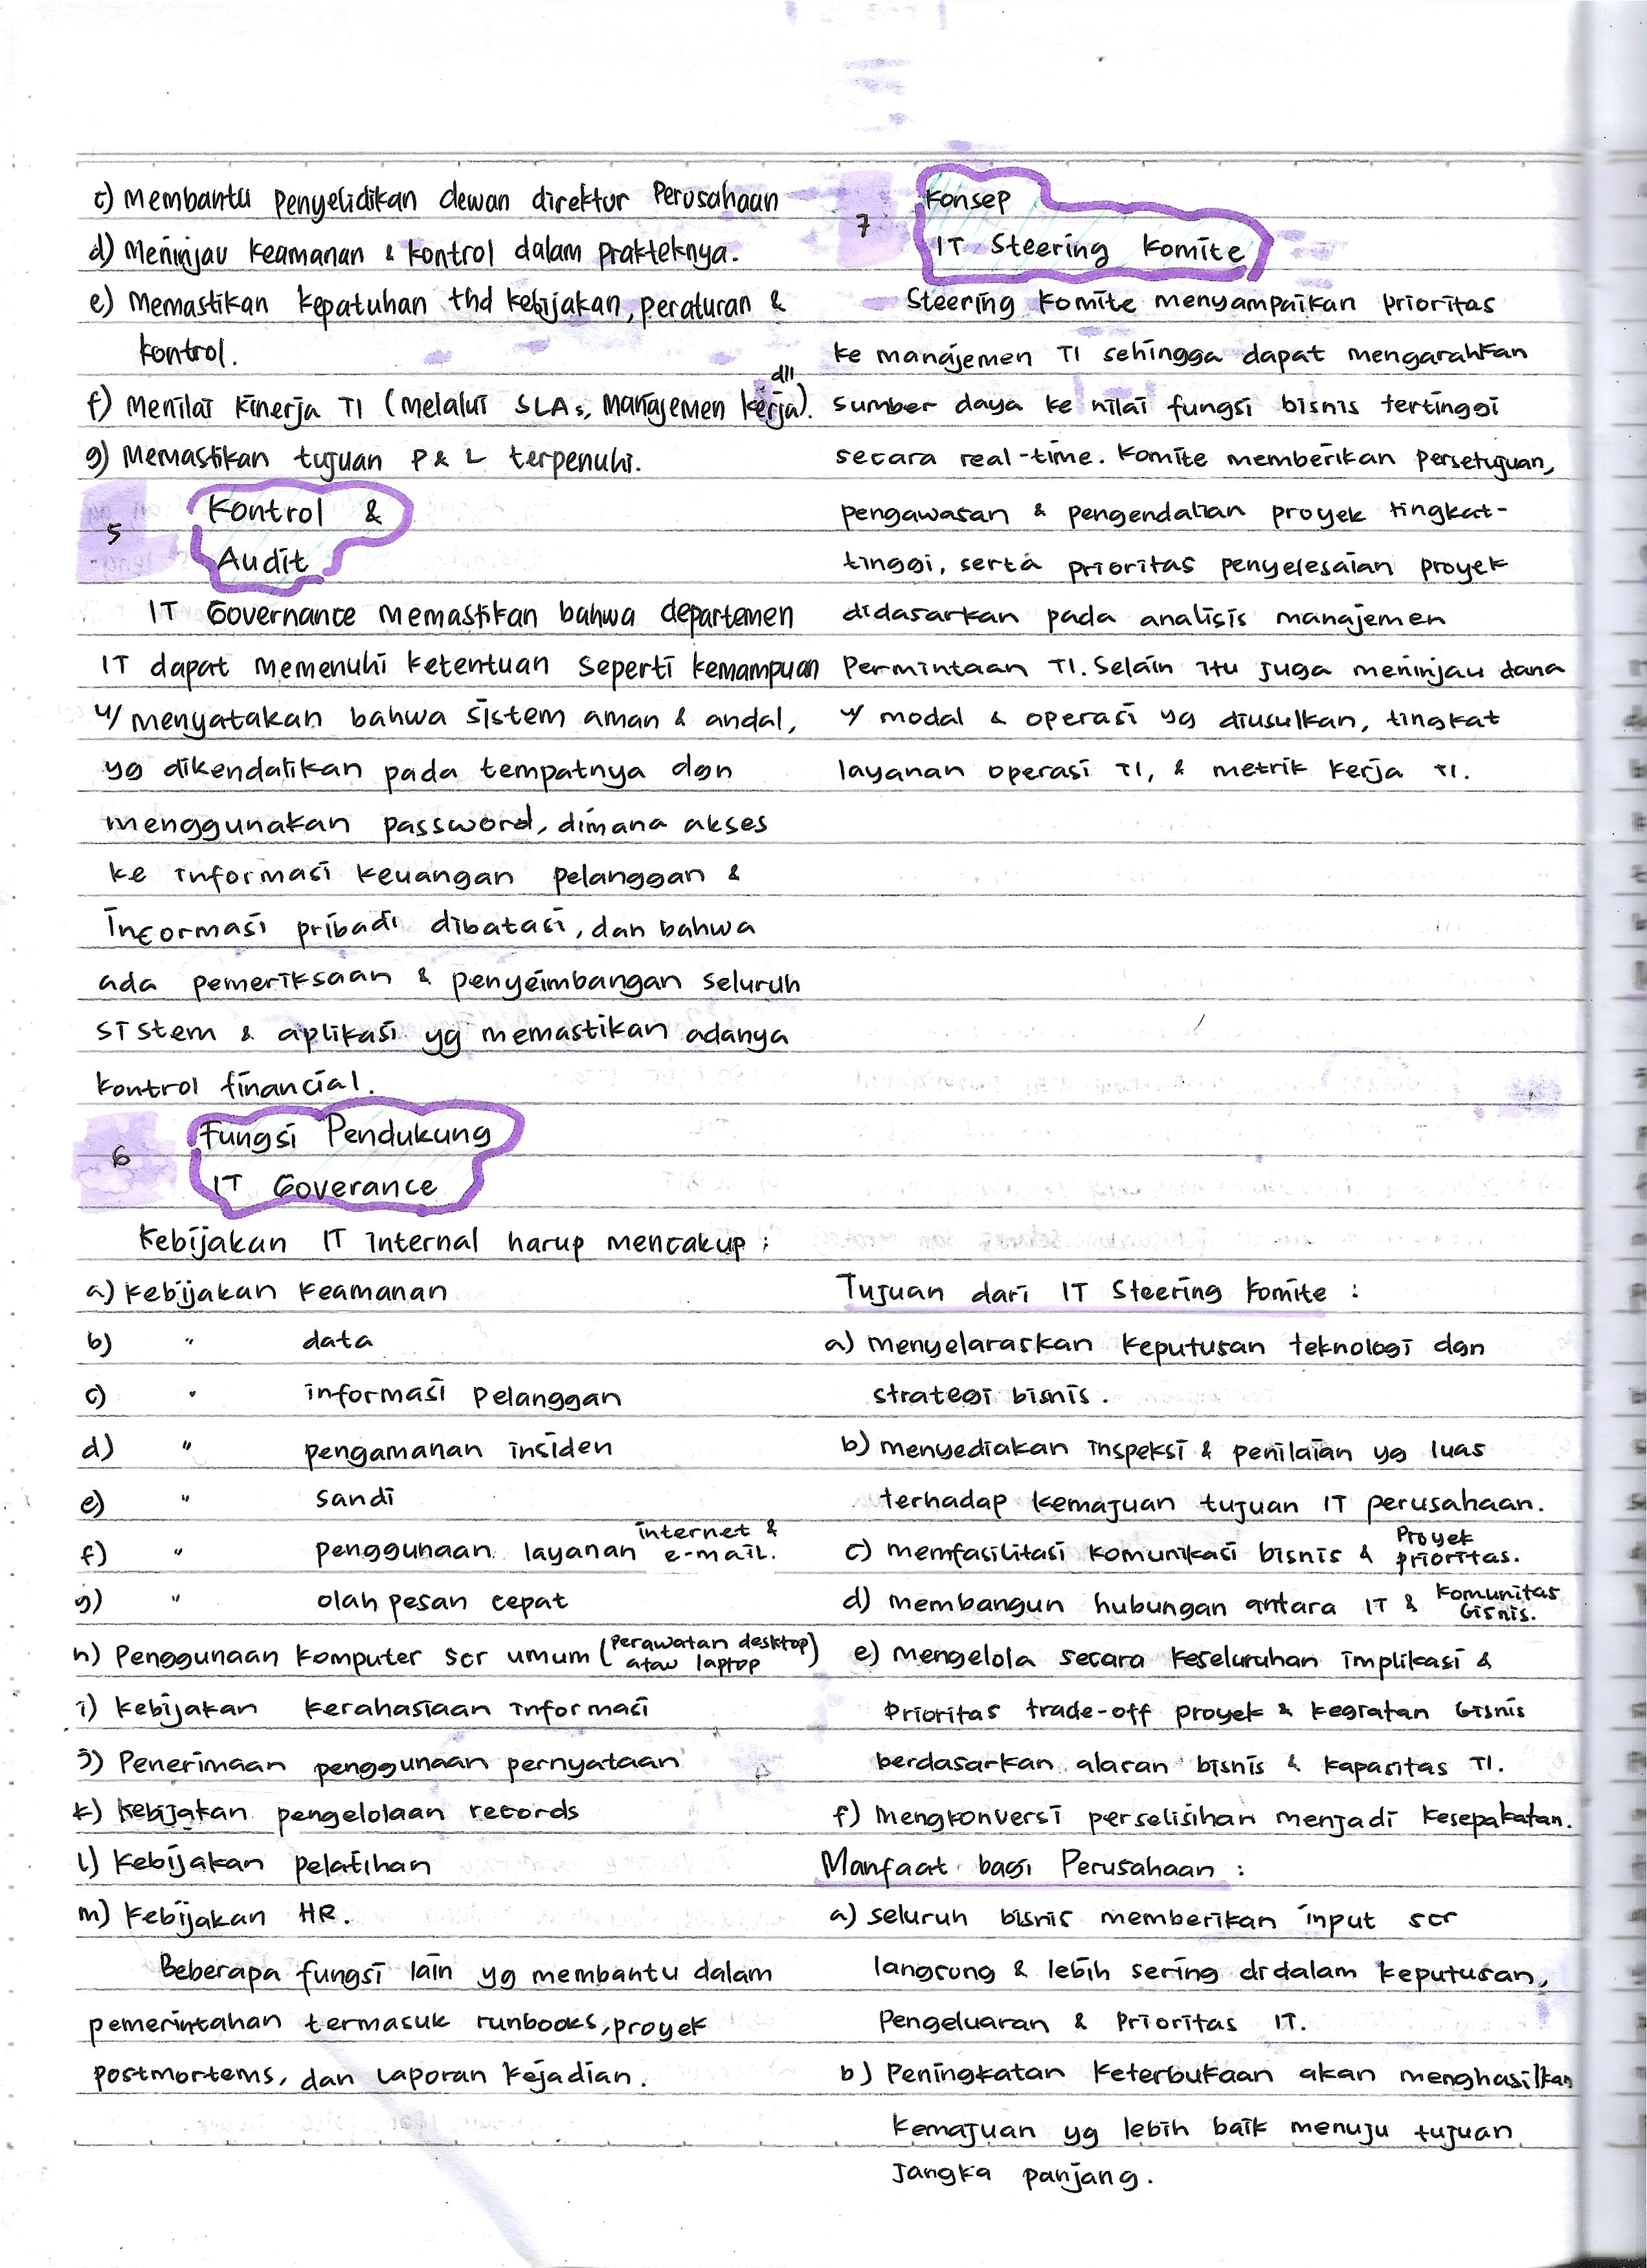 c) Membantu penyelidikan dewan direktur Perusahaan
d) Meninjau keamanan & kontrol dalam prakteknya.
e) Memastikan kepatuhan thd kebijakan, peraturan &
kontrol.
f) Menilai kinerja TI (melalui SLAs, Manajemen kerja dll).
g) Memastikan tujuan P & L terpenuhi.
5
Kontrol &
Audit
IT Governance memastikan bahwa departemen
IT dapat memenuhi ketentuan seperti kemampuan
u/ menyatakan bahwa sistem aman & andal,
yg dikendalikan pada tempatnya dgn
menggunakan password, dimana akses
ke informasi keuangan pelanggan &
Incormasi pribadi dibatasi, dan bahwa
ada pemeriksaan & penyeimbangan seluruh
sistem & aplikasi yg memastikan adanya
kontrol financial.
6
Fungsi Pendukung
IT Goverance
Kebijakan IT internal harup mencakup :
a) Kebijakan Keamanan
b) " data
c) " informasi pelanggan
d) " pengamanan insiden
e) " Sandi
f) " penggunaan layanan internet & e-mail.
g) " olah pesan cepat
h) Penggunaan komputer scr umum (perawatan desktop atau laptop)
i) Kebijakan kerahasiaan informasi
j) Penerimaan penggunaan pernyataan
k) Kebijakan pengelolaan records
l) Kebijakan pelatihan
m) Kebijakan HR.
Beberapa fungsi lain yg membantu dalam
pemerintahan termasuk runbooks, proyek
postmortems, dan laporan kejadian.
7
Konsep
IT Steering Komite
Steering Komite menyampaikan prioritas
ke manajemen TI sehingga dapat mengarahkan
sumber daya ke nilai fungsi bisnis tertinggi
secara real-time. Komite memberikan persetujuan,
pengawasan & pengendalian proyek tingkat-
tinggi, serta prioritas penyelesaian proyek
didasarkan pada analisis manajemen
Permintaan TI. Selain itu juga meninjau dana
u/ modal & operasi yg diusulkan, tingkat
layanan operasi TI, & metrik kerja TI.
Tujuan dari IT Steering Komite :
a) menyelaraskan keputusan teknologi dgn
strategi bisnis.
b) menyediakan inspeksi & penilaian yg luas
terhadap kemajuan tujuan IT perusahaan.
c) memfasilitasi komunikasi bisnis & Proyek prioritas.
d) membangun hubungan antara IT & Komunitas bisnis.
e) mengelola secara keseluruhan implikasi &
Prioritas trade-off proyek & kegiatan bisnis
berdasarkan alasan bisnis & kapasitas TI.
f) Mengkonversi perselisihan menjadi kesepakatan.
Manfaat bagi Perusahaan :
a) seluruh bisnis memberikan input scr
langsung & lebih sering didalam keputusan,
Pengeluaran & Prioritas IT.
b) Peningkatan Keterbukaan akan menghasilkan
Kemajuan yg lebih baik menuju tujuan
Jangka panjang.